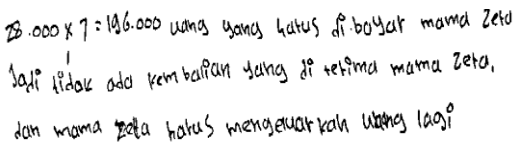 28.000 x 7 = 196.000 uang yang harus di bayar mama Zeta
Jadi tidak ada kembalian yang di terima mama Zeta,
dan mama zeta harus mengeuarkah uang lagi